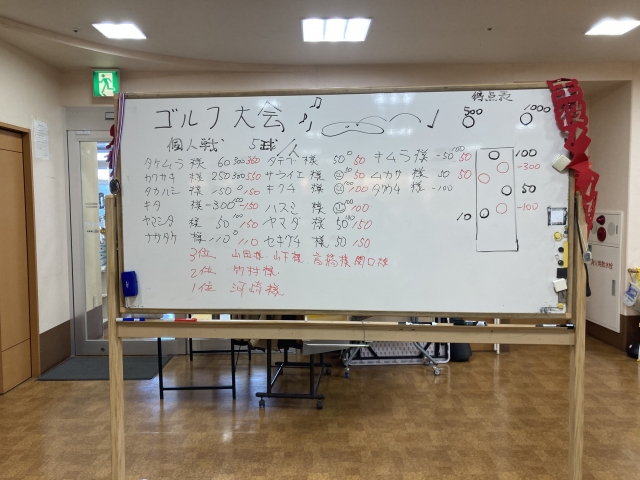 ゴルフ大会
得点表
500 1000
個人戦 5球/人
タケムラ様 60 300 360
カワサキ様 250 300 550
タカハシ様 150 0 150
キタ様 -300 150
ヤマシタ様 50 100 150
ササダウ様 110 0 110
タナブ様 50 0 50
サライエ様 50
キクチ様 100
ハスミ様 100
ヤマダ様 50 100 150
セキグチ様 50 150
キムラ様 -50 100 50
ムカサ様 50 50
タグチ様 -100
100
-300
50
-100
10
3位 山田様、山下様 高橋様 関口様
2位 竹村様
1位 河崎様